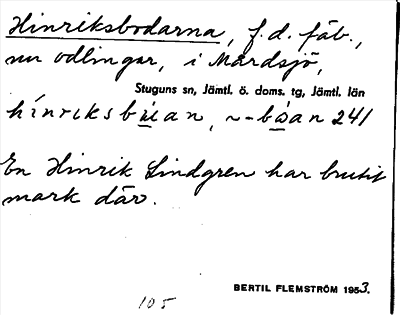 Hinriksbodarna, f.d. fäb.,
nu odlingar, i Mårdsjö,
Stuguns sn, Jämtl. ö. doms. tg, Jämtl. län
hínriksbu̲an, ~-bo̲an 241
En Hinrik Lindgren har brutit
mark där.
BERTIL FLEMSTRÖM 1953.
105